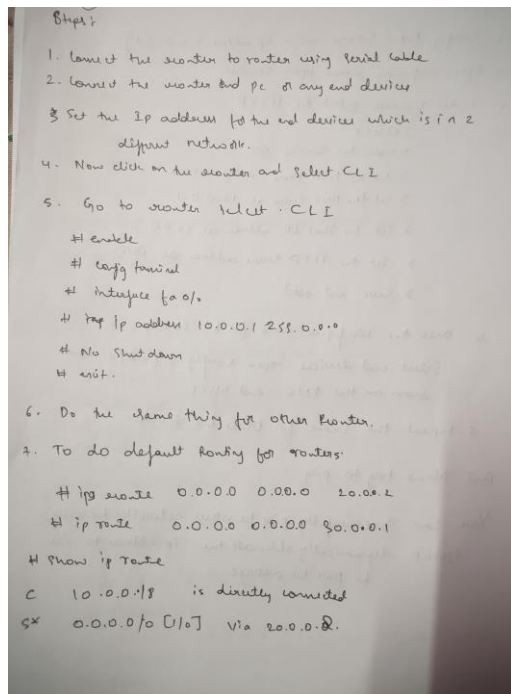 Steps :
1. Connect the router to router using serial cable
2. Connect the router and pc or any end devices
3 Set the Ip address for the end devices which is in 2
different network.
4. Now click on the router and select CLI
5. Go to router select . CLI
# enable
# config terminal
# interface fa 0/0
# ip address 10.0.0.1 255.0.0.0
# No shut down
# exit.
6. Do the same thing for other Router.
7. To do default Routing for routers.
# ip route 0.0.0.0 0.0.0.0 20.0.0.2
# ip route 0.0.0.0 0.0.0.0 30.0.0.1
# Show ip route
C 10.0.0.0/8 is directly connected
S* 0.0.0.0/0 [1/0] via 20.0.0.2.